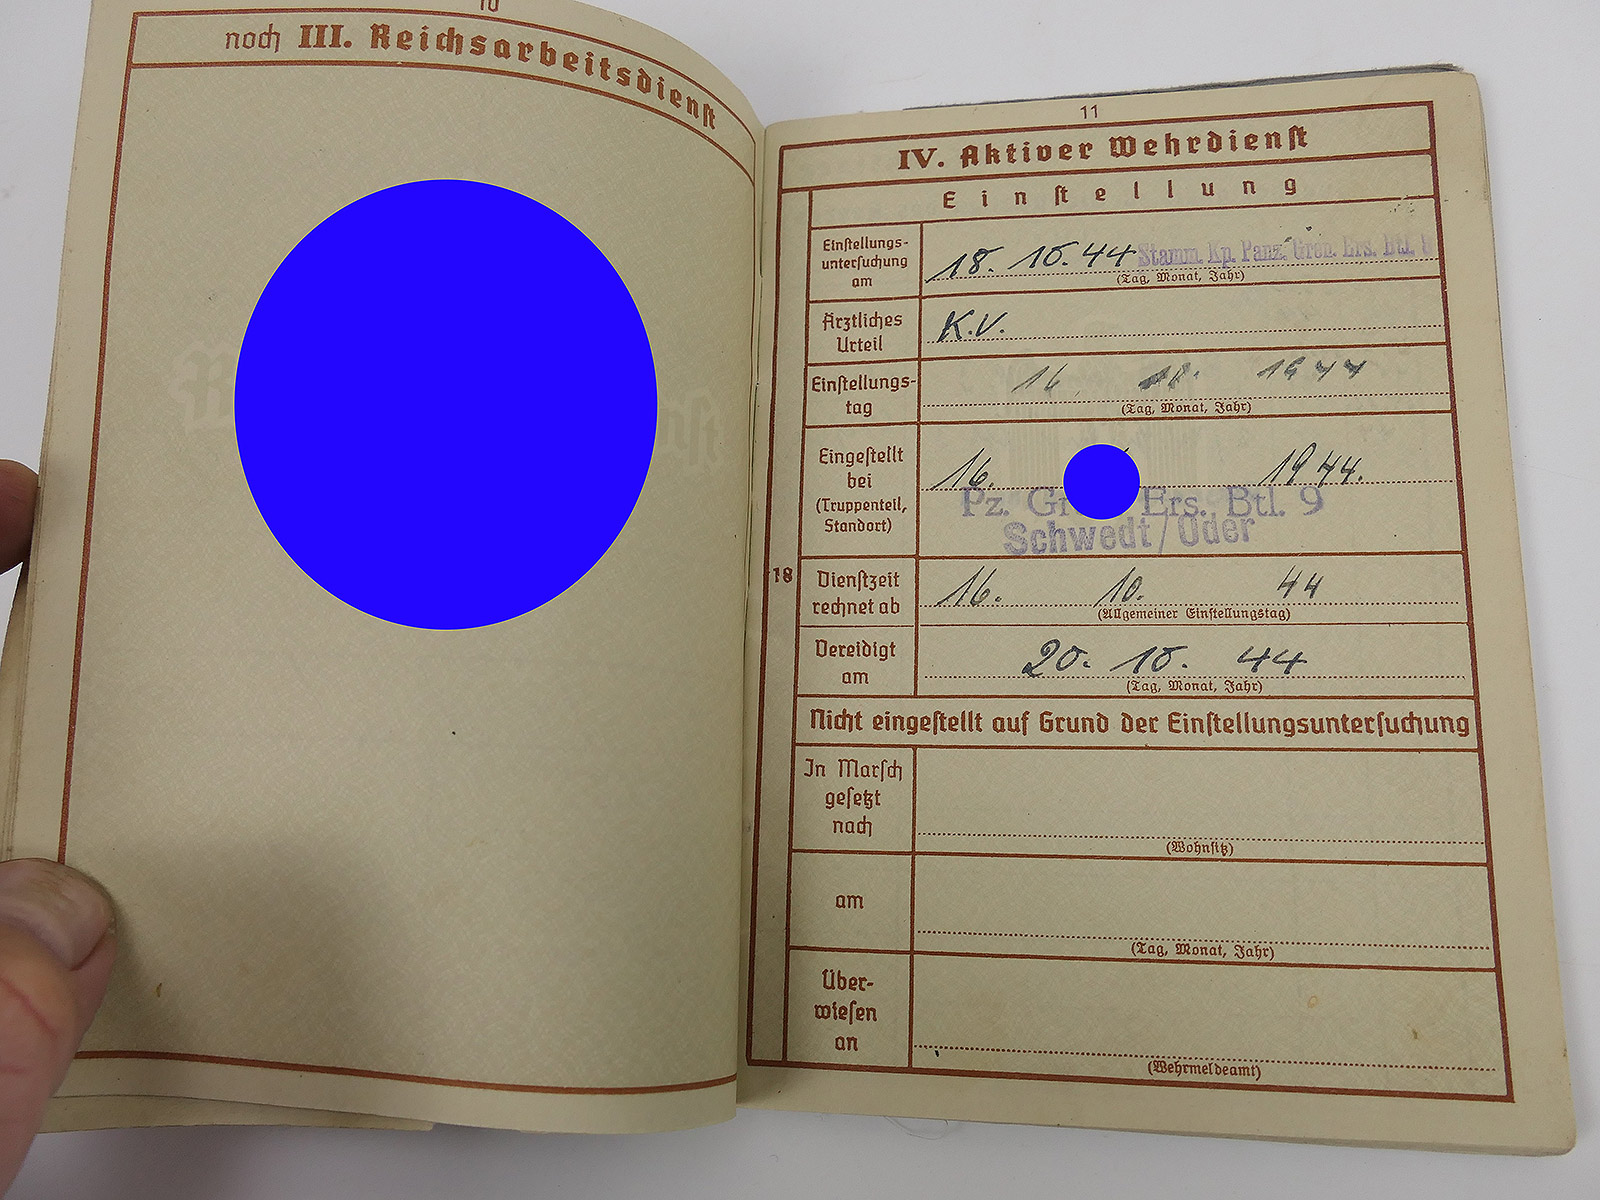 10
noch III. Reichsarbeitsdienst
11
IV. Aktiver Wehrdienst
Einstellung
Einstellungs-
untersuchung
am
18. 10. 44 Stamm. Kp. Panz. Gren. Ers. Btl.
(Tag, Monat, Jahr)
Ärztliches
Urteil
K.V.
Einstellungs-
tag
16 10. 1944
(Tag, Monat, Jahr)
Eingestellt
bei
(Truppenteil,
Standort)
16. 1944.
Pz. Ers. Btl. 9
Schwedt/Oder
18
Dienstzeit
rechnet ab
16. 10. 44
(Allgemeiner Einstellungstag)
Vereidigt
am
20. 10. 44
(Tag, Monat, Jahr)
Nicht eingestellt auf Grund der Einstellungsuntersuchung
In Marsch
gesetzt
nach
(Wohnsitz)
am
(Tag, Monat, Jahr)
Über-
wiesen
an
(Wehrmeldeamt)